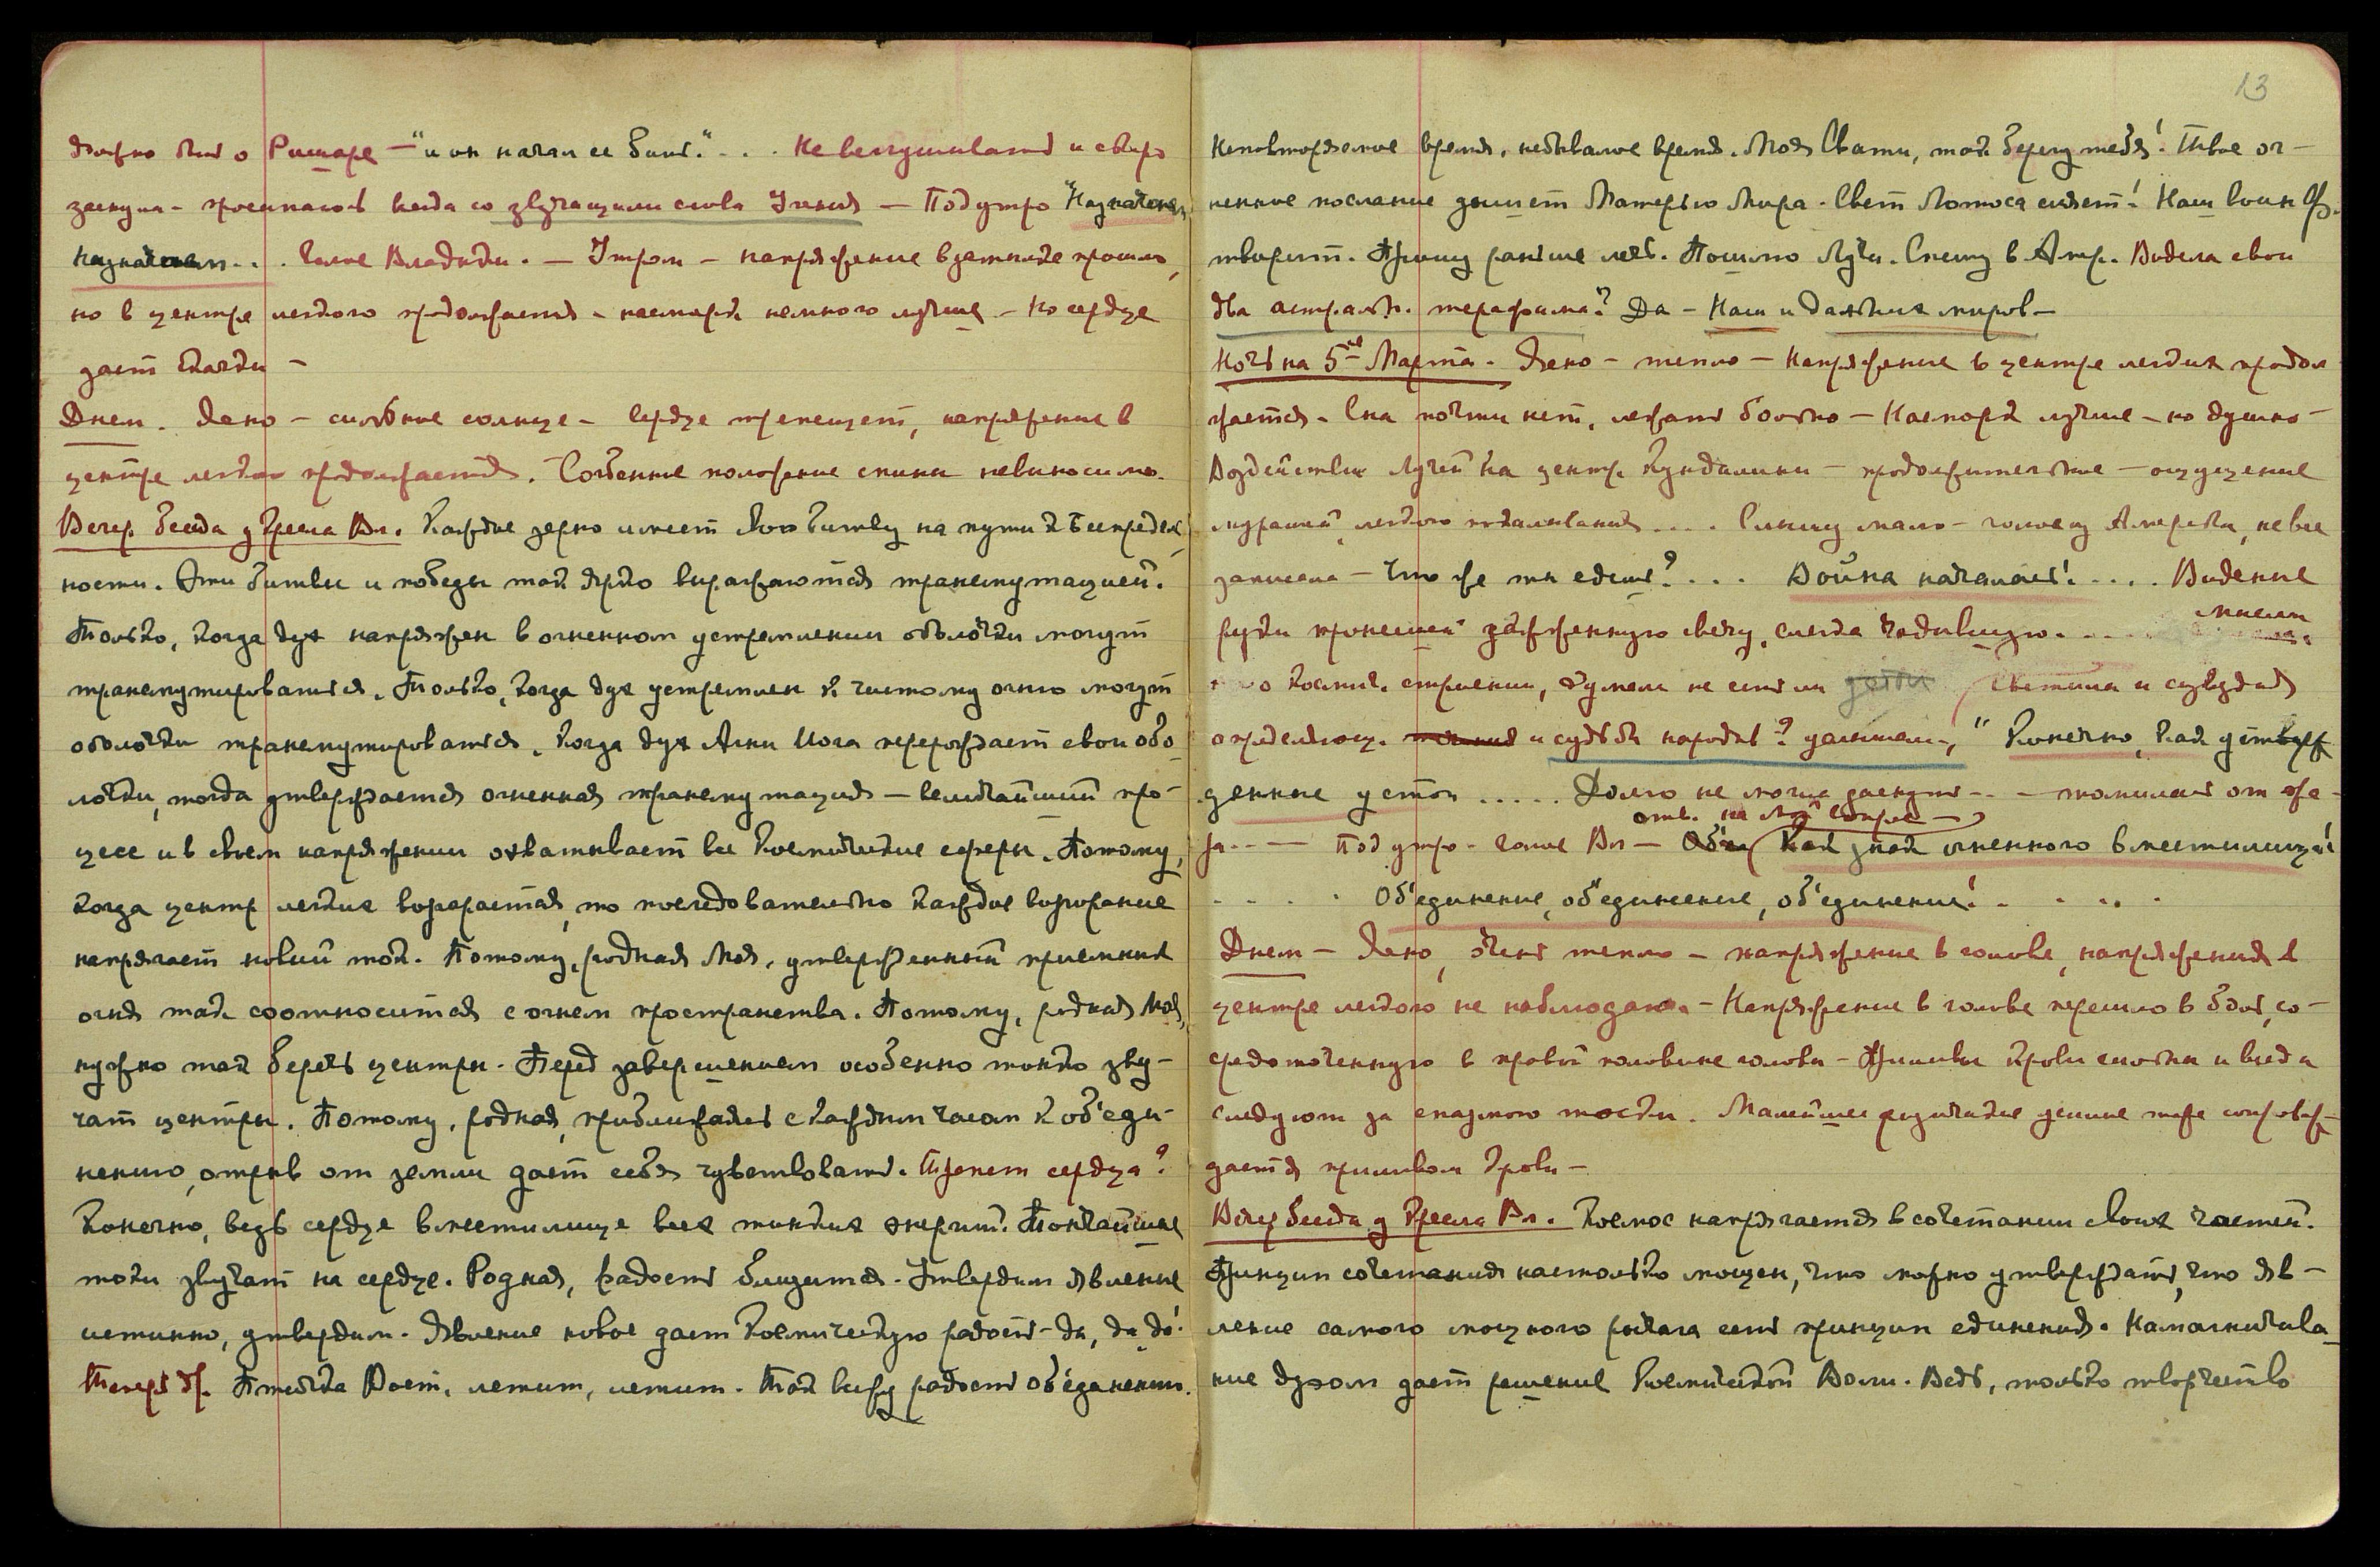 должно быть о Ришаре — "и он начал ее бить." . . . Не вслушиваясь и скоро
заснула - просыпалась всегда со звучащими слова Учения — Под утро "Назначаем,
назначаем . . . Голос Владыки. — Утром — напряжение в затылке прошло,
но в центре легкого продолжается - насморк немного лучше - но сердце
дает скачки —
Днем. Ясно — сильное солнце — сердце трепещет, напряжение в
центре легкого продолжается. Согбенное положение спины невыносимо.
Вечер. Беседа у Кресла Вл. Каждое зерно имеет свою битву на пути к Беспредель-
ности. Эти битвы и победы так ярко выражаются трансмутацией.
Только, когда дух напряжен в огненном устремлении оболочки могут
трансмутироваться. Только, когда дух устремлен к чистому огню могут
оболочки трансмутироваться. Когда дух Агни Йога перерождает свои обо-
лочки, тогда утверждается огненная трансмутация — величайший про-
цесс и в своем напряжении охватывает все Космические сферы. Потому,
когда центр легких возгорается, то последовательно каждое возгорание
напрягает новый ток. Потому, родная Моя, утвержденный приемник
огня так соотносится с огнем пространства. Потому, родная Моя,
нужно так беречь центры. Перед завершением особенно тонко зву-
чат центры. Потому, родная, приближаясь с каждым часом к об'еди-
нению, отрыв от земли дает себя чувствовать. Трепет сердца?
Конечно, ведь сердце вместилище всех тонких энергий. Тончайшие
токи звучат на сердце. Родная, радость близится. Утвердим явление
истинно, утвердим. Явление новое дает Космическую радость - да, да, да!
Теперь др. Птичка Поет, летит, летит. Так вижу радость об'единения.
13
Неповторяемое время, небывалое время. Моя Свати, так берегу тебя! Твое ог-
ненное послание дышит Матерью Мира. Свет Лотоса сияет! Наш воин Ф.
творит. Прошу раньше лечь. Пошлю Лучи. Спешу в Амер. Видела свои
два астральн. терафима? Да - Наш и дальних миров —
Ночь на 5ое Марта. Ясно — тепло — Напряжение в центре легких продол-
жается. Сна почти нет, лежать больно — Насморк лучше — но душно —
Воздействие лучей на центр Кундалини — продолжительное — ощущение
мурашей, легкого покалывания . . . . Слышу мало - Америки, не все
записала — Что же ты едишь? . . . Война началась! . . . . Видение
руки пронесшей зажженную свечу, слегка чадившую. . . .
о космич. строении, думала не есть ли светила и созвездия
определяющ. и судьбы народов? услышала, "Конечно, как утверж-
денные устои . . . . . Долго не могла заснуть . . — томилась от жа-
отв. на мой вопрос —
ра . . . — Под утро - голос Вл — Как знак огненного вместилища!
. . . . Об'единение, об'единение, об'единение! . . . . .
Днем — Ясно, очень тепло — напряжение в голове, напряжения в
центре легкого не наблюдаю. — Напряжение в голове перешло в боль, со-
средоточенную в правой половине головы — Приливы крови сильны и всегда
следуют за спазмою тоски. Малейшее физическое усилие тоже сопровож-
дается приливом крови —
Вечер Беседа у Кресла Вл. Космос напрягается в сочетании своих частей.
Принцип сочетания настолько мощен, что можно утверждать, что яв-
ление самого мощного рычага есть принцип единения. Намагничива-
ние духом дает решение Космической Воли. Ведь, только творчество